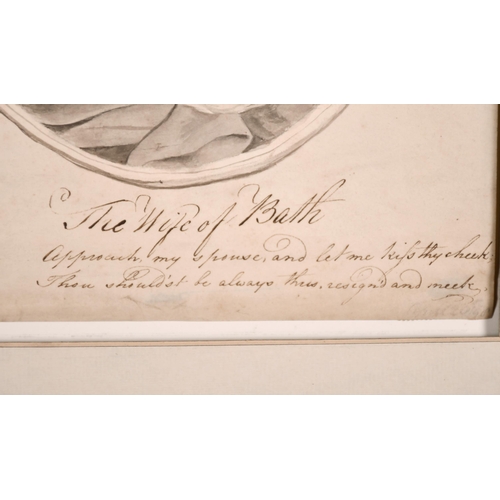 The Wife of Bath
Approach, my spouse, and let me kiſs thy cheek;
Thou should'st be always thus, resign'd and meek.